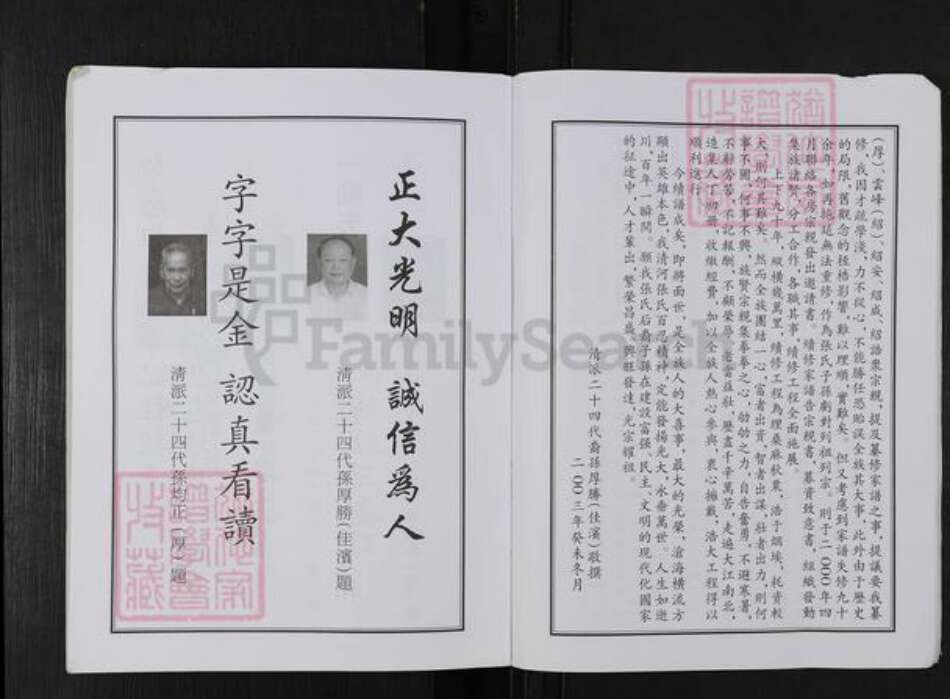 (厚)、雲峰(紹)、紹安、紹成、紹語衆宗親,提及纂修家譜之事,提議要我纂
修,我因才疏學淺,力不從心,不能勝任恐貽誤全族其大事,此外由于歷史
的局限,舊觀念的桎梏影響,難以理順,實難矣。但又考慮到家譜失修九十
余年,如再拖延無法重修,作為張氏子孫劇對列祖列宗。則于二〇〇〇年四
月聯絡各房宗親發出邀請書。續修家譜告宗親書、募資致意書,組織發動
集族諸賢,分工合作,各職其事,續修工程全面施展。
上下九十年,縱橫幾萬里,續修工程為理桑麻秋葉,浩于烟埃,耗資較
大,則何其難矣。然而全族團結一心,富者出資,智者出謀,壯者出力,則何
事不圖,何事不興,族賢宗親集拳拳之心,劬劬之力,自告奮勇,不避寒暑,
不辭勞苦,不記報酬,不顧榮辱,老當益壯,歷盡千辛萬苦,走遍大江南北,
造集人丁協冊,收繳經費,加以全族人熱心參與,衷心擁戴,浩大工程得以
順利進行。
今續譜成矣,即將面世,是全族人的大喜事,最大的光榮,滄海橫流方
顯出英雄本色,我清河張氏百忍精神,定能發揚光大,永垂萬世。人生如逝
川,百年一瞬間。願我張氏后裔子孫在建設富强、民主、文明的現代化國家
的征途中,人才輩出,繁榮昌盛,興旺發達,光宗耀祖。
清派二十四代裔孫厚勝(佳濱)敬撰
二〇〇三年癸未冬月
正大光明 誠信為人
清派二十四代孫厚勝(佳濱)題
字字是金 認真看讀
清派二十四代孫均正(厚)題
FamilySearch